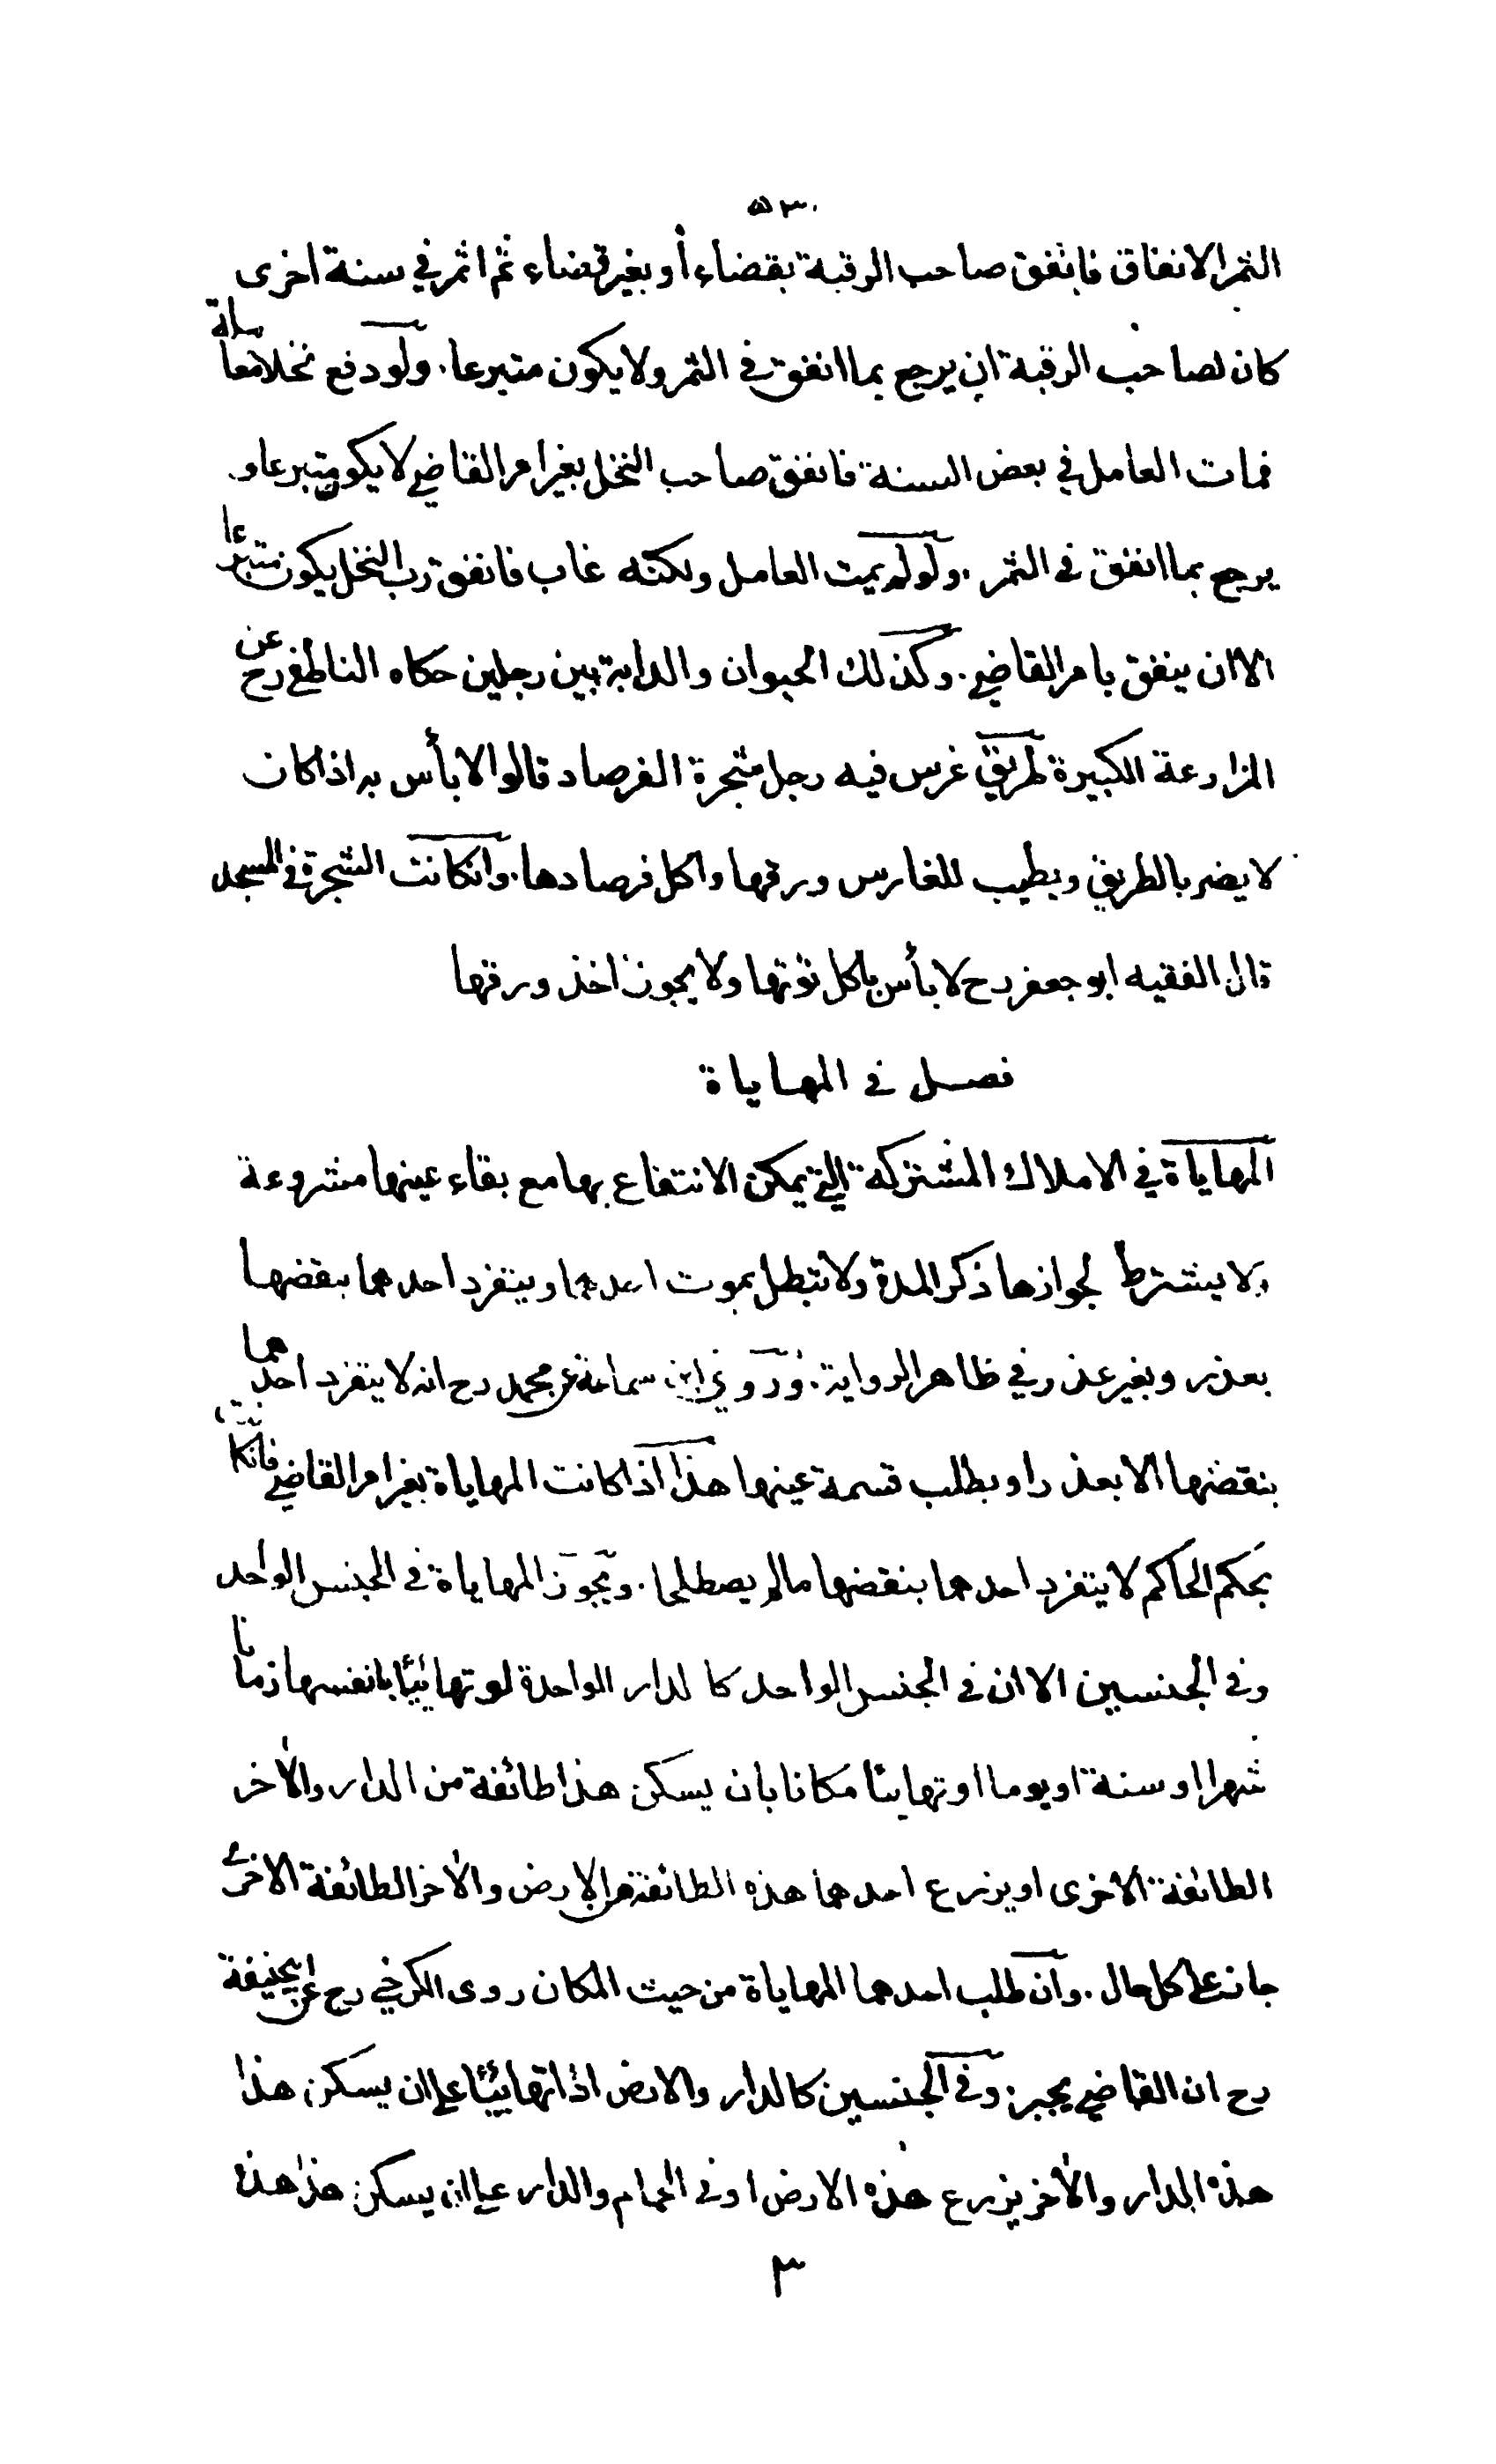 ٥٣٠
الثمر الانفاق فانفق صاحب الرقبة بقضاء أو بغير قضاء ثم اثمر في سنة اخرى
كان لصاحب الرقبة ان يرجع بما انفق في الثمر ولا يكون متبرعا. ولو دفع نخلا معاملة
فمات العامل في بعض السنة فانفق صاحب النخل بغير امر القاضي لا يكون متبرعا و
يرجع بما انفق في الثمر. ولو لم يمت العامل ولكنه غاب فانفق رب النخل يكون متبرعا
الا ان ينفق بامر القاضي. وكذلك الحيوان والدابة بين رجلين حكاه الناطفي رح عن
المزارعة الكبيرة طريق غرس فيه رجل شجرة الفرصاد قالوا لا بأس به اذا كان
لا يضر بالطريق ويطيب للغارس ورقها واكل فرصادها. وانكانت الشجرة في المسجد
قال الفقيه ابو جعفر رح لا بأس باكل توتها ولا يجوز اخذ ورقها
فصل في المهاياة
المهاياة في الاملاك المشتركة التي يمكن الانتفاع بها مع بقاء عينها مشروعة
ولا يشترط لجوازها ذكر المدة ولا تبطل بموت احدهما وينفرد احدهما بنقضها
بعذر وبغير عذر في ظاهر الرواية. وروي ابن سماعة عن محمد رح انه لا يتفرد احدهما
بنقضها الا بعذر او بطلب قسمة عينها هذا اذا كانت المهاياة بغير امر القاضي فانكانت
بحكم الحاكم لا يتفرد احدهما بنقضها مالم يصطلحا. وتجوز المهاياة في الجنس الواحد
وفي الجنسين الا ان في الجنس الواحد كالدار الواحدة لو تهايئا بانفسهما زمانا
شهرا او سنة او يوما او تهايئا مكانا بان يسكن هذا طائفة من الدار والآخر
الطائفة الاخرى او يزرع احدهما هذه الطائفة من الارض والآخر الطائفة الاخرى
جاز على كل حال. وان طلب احدهما المهاياة من حيث المكان روى الكرخي رح عن ابيحنيفة
رح ان القاضي يجبر. وفي الجنسين كالدار والارض اذا تهايئا على ان يسكن هذا
هذه الدار والآخر يزرع هذه الارض او في الحمام والدار على ان يسكن هذا هذه
٣